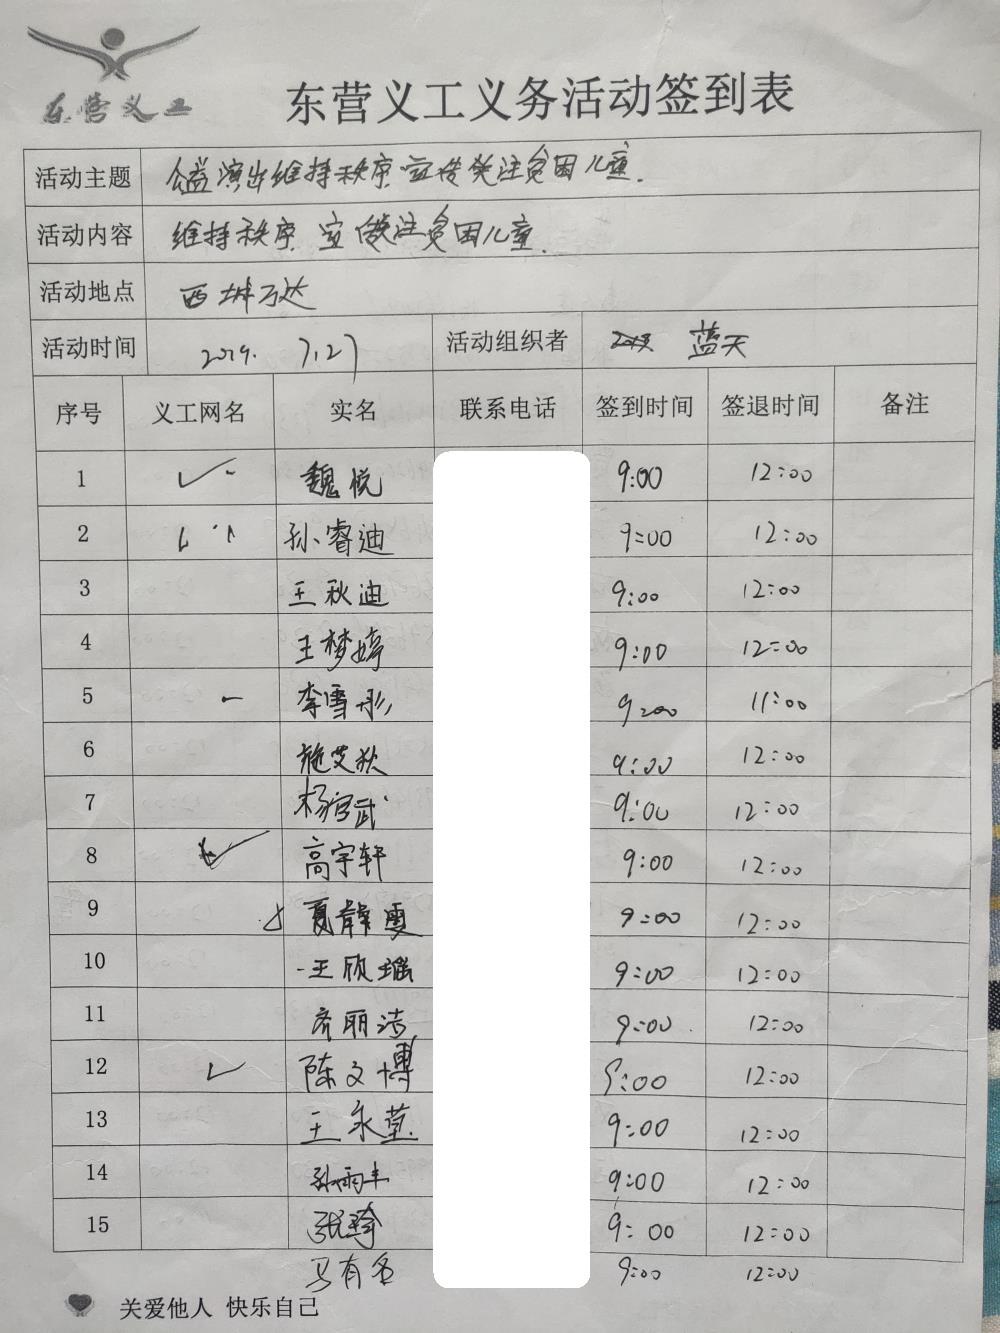 东营义工
东营义工义务活动签到表
活动主题 公益演出维持秩序 宣传关注贫困儿童.
活动内容 维持秩序 宣传关注贫困儿童.
活动地点 西城万达
活动时间 2019. 7.27 活动组织者 蓝天
序号 义工网名 实名 联系电话 签到时间 签退时间 备注
1 魏悦 9:00 12:00
2 孙睿迪 9:00 12:00
3 王秋迪 9:00 12:00
4 王梦婷 9:00 12:00
5 李雪彤 9:00 11:00
6 施艾狄 9:00 12:00
7 杨官武 9:00 12:00
8 高宇轩 9:00 12:00
9 夏薛雯 9:00 12:00
10 王欣瑶 9:00 12:00
11 齐丽洁 9:00 12:00
12 陈文博 9:00 12:00
13 王永莹 9:00 12:00
14 孙雨丰 9:00 12:00
15 9:00 12:00
马有名 9:00 12:00
关爱他人 快乐自己